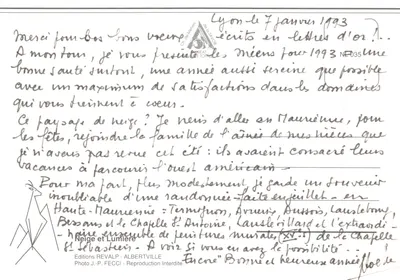 Lyon le 7 janvier 1993
Merci pour vos bons voeux écrits en lettres d'or !..
A mon tour, je vous présente les miens pour 1993 une
bonne santé surtout, une année aussi sereine que possible
avec un maximum de satisfactions dans les domaines
qui vous tiennent à coeur.
Ce paysage de neige ? Je viens d'aller en Maurienne, pour
les fêtes, rejoindre la famille de l'aînée de mes nièces que
je n'avais pas revue cet été : ils avaient consacré leurs
vacances à parcourir l'ouest américain.
Pour ma part, plus modestement, je garde un souvenir
inoubliable d'une randonnée faite en juillet en
Haute-Maurienne : Termignon, Aussois, Lanslebourg,
Bessans et la Chapelle St Antoine, Lanslevillard et l'extraordi-
naire ensemble de peintures murales (XVe s) de la Chapelle
St Sébastien. A voir si vous en avez la possibilité.
Encore "Bonne et heureuse année"
Neige et Lumière
Editions REVALP - ALBERTVILLE
Photo J.-P. FECCI - Reproduction interdite